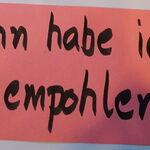 nn habe i
empohlen